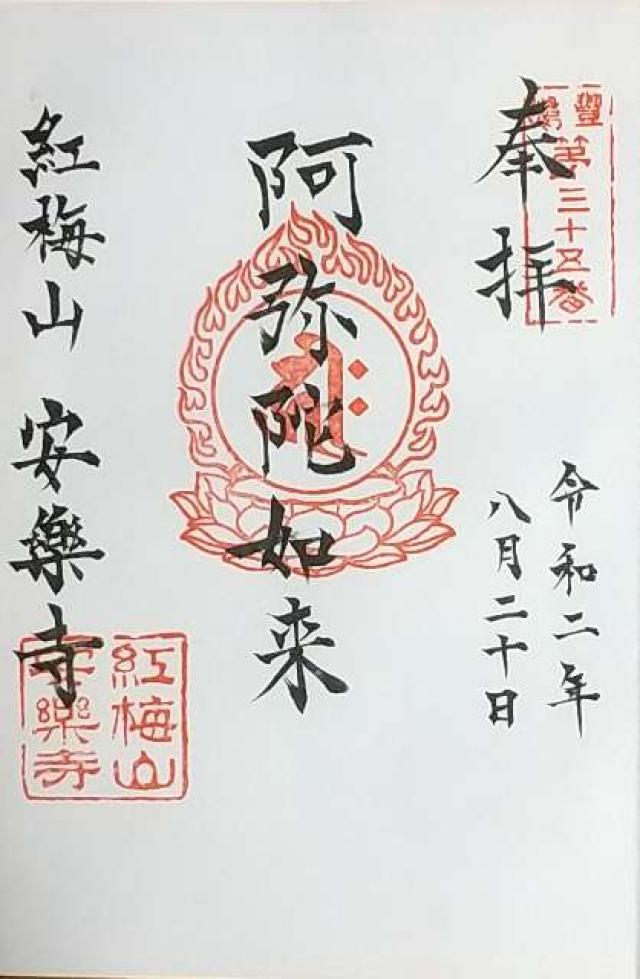 奉拝
豐嶋
第三十五番
令和二年
八月二十日
阿弥陀如来
紅梅山 安樂寺
紅梅山
安樂寺